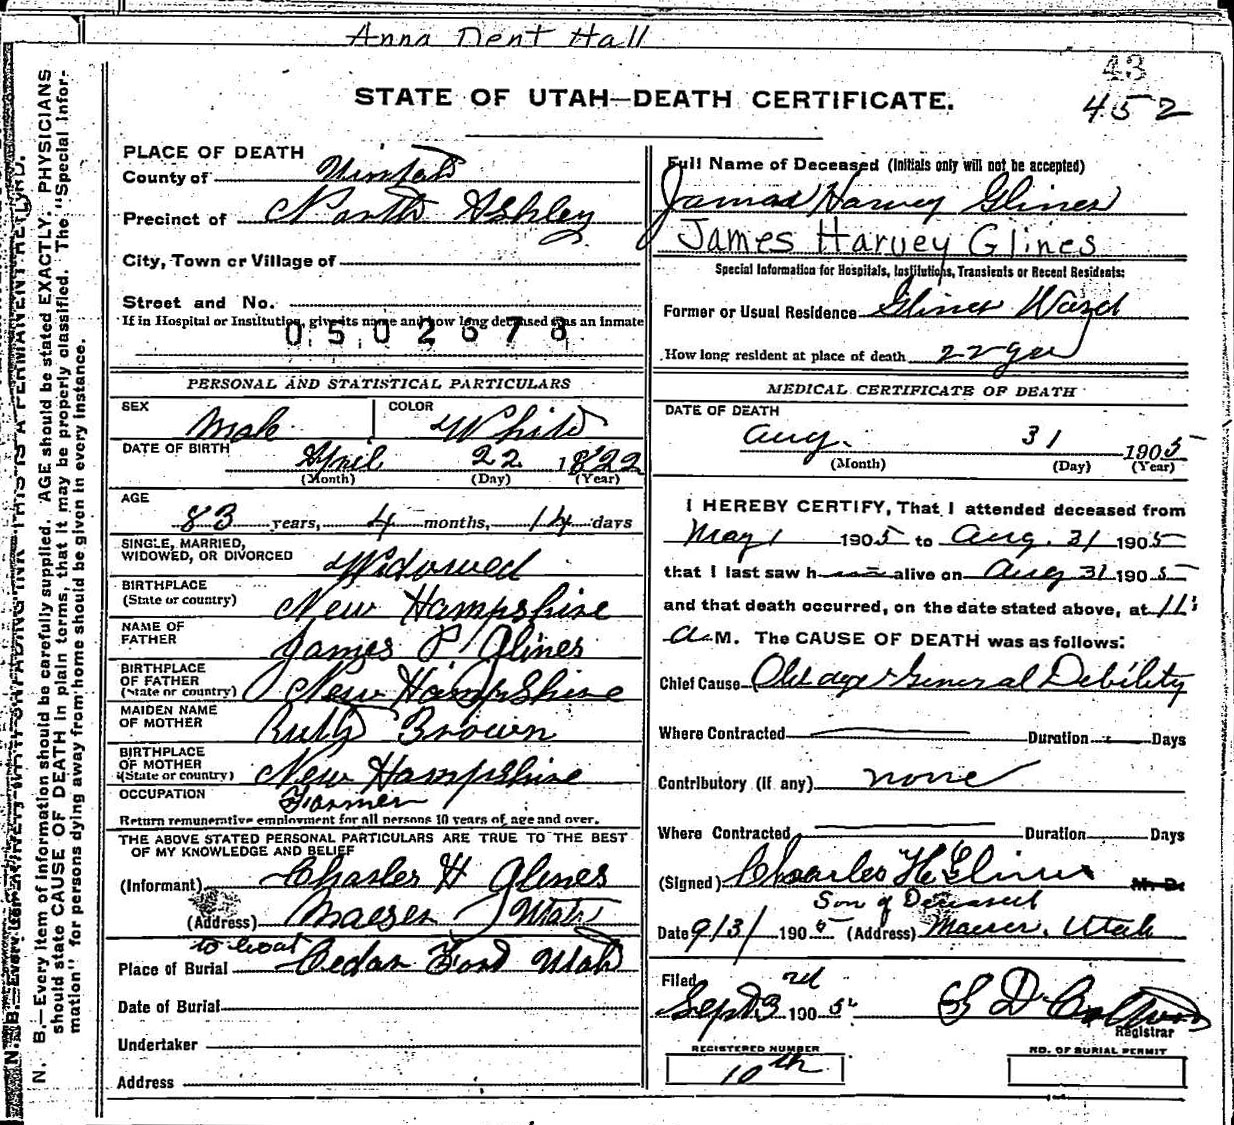 Anna Dent Hall
43
452
STATE OF UTAH—DEATH CERTIFICATE.
PLACE OF DEATH
County of Uintah
Precinct of North Ashley
City, Town or Village of
Street and No.
If in Hospital or Institution, give its name and how long deceased was an inmate
0502678
PERSONAL AND STATISTICAL PARTICULARS
SEX Male COLOR White
DATE OF BIRTH April 22 1822
(Month) (Day) (Year)
AGE
83 years, 4 months, 14 days
SINGLE, MARRIED,
WIDOWED, OR DIVORCED Widowed
BIRTHPLACE
(State or country) New Hampshire
NAME OF
FATHER James P. Glines
BIRTHPLACE
OF FATHER
(State or country) New Hampshire
MAIDEN NAME
OF MOTHER Ruth Brown
BIRTHPLACE
OF MOTHER
(State or country) New Hampshire
OCCUPATION Farmer
Return remunerative employment for all persons 10 years of age and over.
THE ABOVE STATED PERSONAL PARTICULARS ARE TRUE TO THE BEST
OF MY KNOWLEDGE AND BELIEF
(Informant) Charles H Glines
(Address) Maeser Utah
Place of Burial Cedar Ford Utah
Date of Burial
Undertaker
Address
Full Name of Deceased (Initials only will not be accepted)
James Harvey Glines
James Harvey Glines
Special Information for Hospitals, Institutions, Transients or Recent Residents:
Former or Usual Residence Glines Ward
How long resident at place of death 22 yrs
MEDICAL CERTIFICATE OF DEATH
DATE OF DEATH
Aug. 31 1905
(Month) (Day) (Year)
I HEREBY CERTIFY, That I attended deceased from
May 1 1905 to Aug. 31 1905
that I last saw h alive on Aug 31 1905
and that death occurred, on the date stated above, at 11:
a M. The CAUSE OF DEATH was as follows:
Chief Cause Old age & General Debility
Where Contracted Duration Days
Contributory (if any) none
Where Contracted Duration Days
(Signed) Charles H Glines M. D.
Son of Deceased
Date 9/3/ 1905 (Address) Maeser, Utah
Filed
Sept 3rd 1905
Registrar
REGISTERED NUMBER
10th
NO. OF BURIAL PERMIT
N. B.—Every item of information should be carefully supplied. AGE should be stated EXACTLY. PHYSICIANS
should state CAUSE OF DEATH in plain terms, that it may be properly classified. The "Special Infor-
mation" for persons dying away from home should be given in every instance.